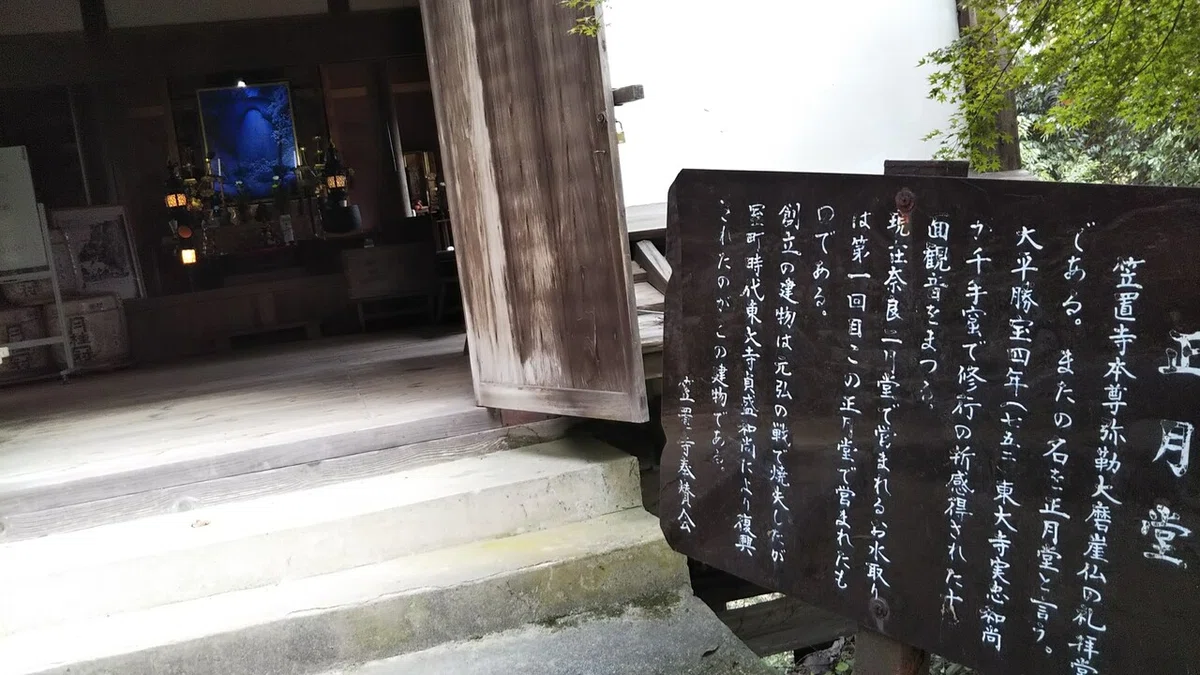 正月堂
笠置寺本尊弥勒大磨崖仏の礼拝堂
である。またの名を正月堂と言う。
大平勝宝四年(七五二 東大寺実忠和尚
が千手窟で修行の祈感得された十一
面観音をまつる。
現在奈良二月堂で営まれるお水取り
は第一回目この正月堂で営まれたも
のである。
創立の建物は元弘の戦で焼失したが
室町時代東大寺貞盛和尚により復興
されたのがこの建物である。
笠置寺奉賛会
月桂冠